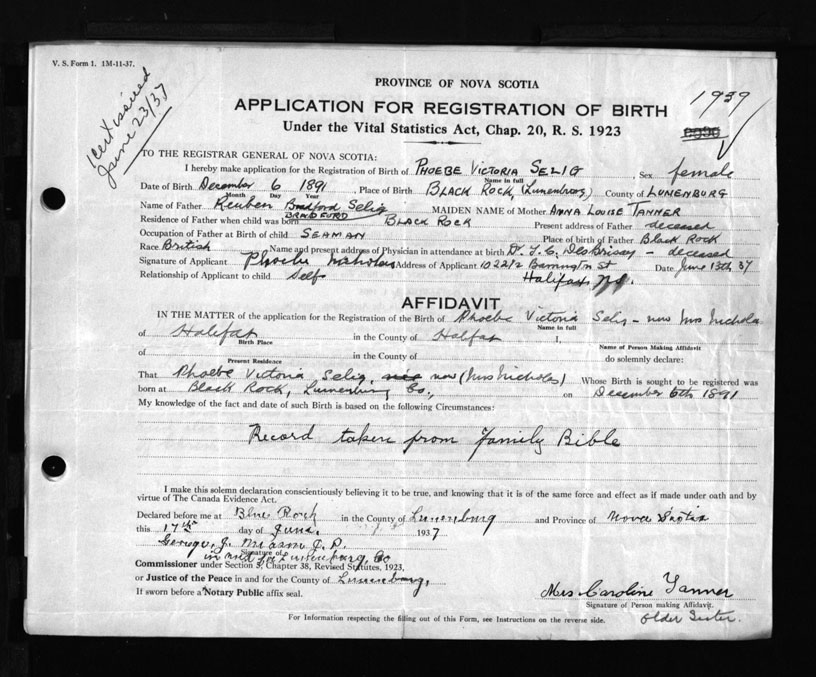 V. S. Form 1. 1M-11-37.
1 Cert issued
June 23/37
PROVINCE OF NOVA SCOTIA
1939
APPLICATION FOR REGISTRATION OF BIRTH
Under the Vital Statistics Act, Chap. 20, R. S. 1923
TO THE REGISTRAR GENERAL OF NOVA SCOTIA:
I hereby make application for the Registration of Birth of PHOEBE VICTORIA SELIG, Sex female
Name in full
Date of Birth December 6 1891, Place of Birth BLACK ROCK, (Lunenburg) County of LUNENBURG
Month Day Year
Name of Father Reuben Bradford Selig MAIDEN NAME of Mother ANNA LOUISE TANNER
BRADFORD
Residence of Father when child was born BLACK ROCK Present address of Father deceased
Occupation of Father at Birth of child SEAMAN Place of birth of Father Black Rock
Race British Name and present address of Physician in attendance at birth D. J. C. DesBrisay - deceased
Signature of Applicant Phoebe Nicholas Address of Applicant 1022 1/2 Barrington St Date June 13th 37
Relationship of Applicant to child Self Halifax, N.S.
AFFIDAVIT
IN THE MATTER of the application for the Registration of the Birth of Phoebe Victoria Selig - now Mrs Nicholas
Name in full
of Halifax in the County of Halifax I,
Birth Place Name of Person Making Affidavit
of in the County of do solemnly declare:
Present Residence
That Phoebe Victoria Selig, now (Mrs Nicholas) Whose Birth is sought to be registered was
born at Black Rock, Lunenburg Co., on December 6th 1891
My knowledge of the fact and date of such Birth is based on the following Circumstances:
Record taken from Family Bible
I make this solemn declaration conscientiously believing it to be true, and knowing that it is of the same force and effect as if made under oath and by
virtue of The Canada Evidence Act.
Declared before me at Blue Rock in the County of Lunenburg and Province of Nova Scotia
this 17th day of June. 1937
George J. Mason J. P.
Signature of
in and for Lunenburg, Co
Commissioner under Section 3, Chapter 38, Revised Statutes, 1923,
or Justice of the Peace in and for the County of Lunenburg,
If sworn before a Notary Public affix seal.
Mrs Caroline Tanner
Signature of Person making Affidavit.
older Sister.
For Information respecting the filling out of this Form, see Instructions on the reverse side.